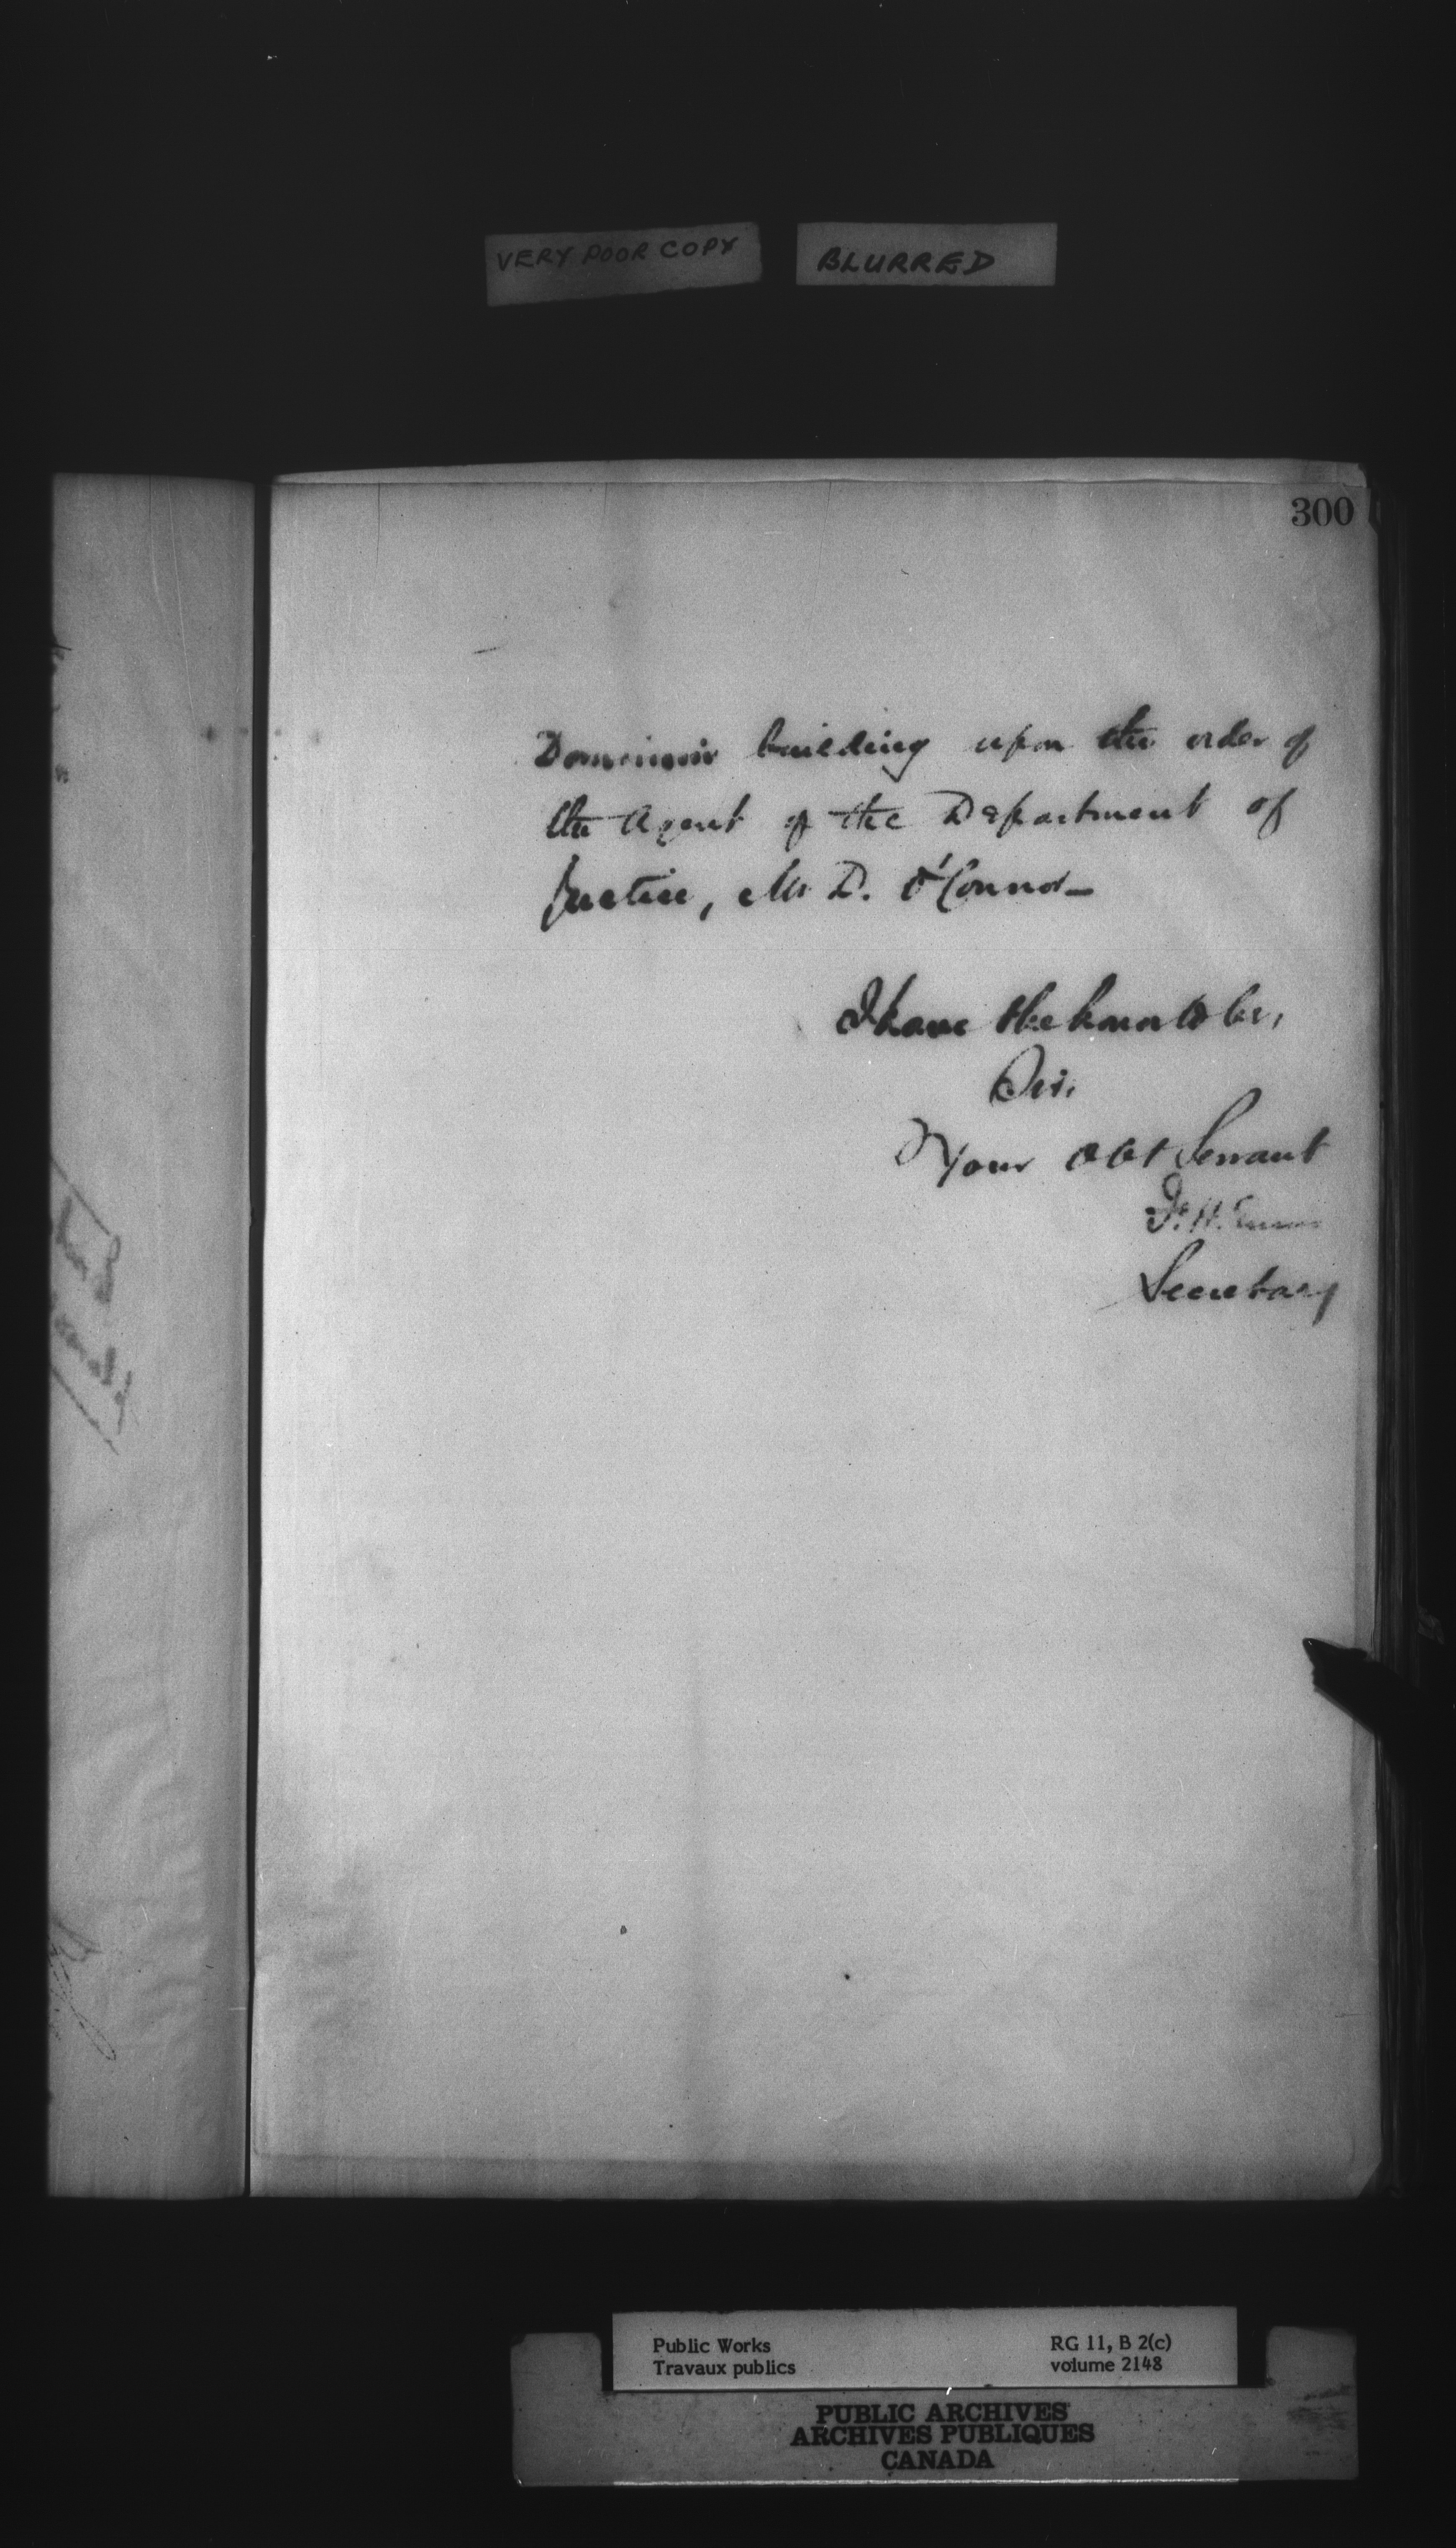 VERY POOR COPY
BLURRED
300
Dominion building upon the order of
the Agent of the Department of
Justice, Mr D. O'Connor
I have the honor to be,
Sir,
Your Obt Servant
F. H. Ennis
Secretary
Public Works
Travaux publics
RG 11, B 2(c)
volume 2148
PUBLIC ARCHIVES
ARCHIVES PUBLIQUES
CANADA